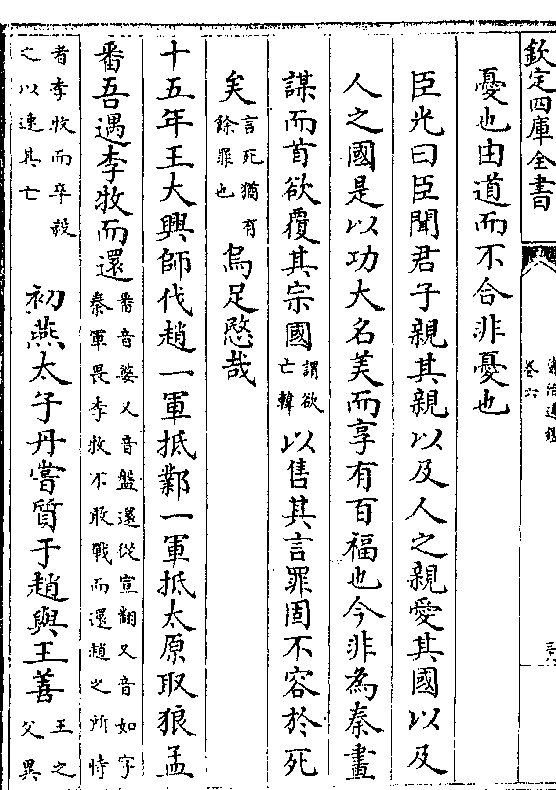 欽定四庫全書
資治通鑑
卷六
憂也由道而不合非憂也
臣光曰臣聞君子親其親以及人之親愛其國以及
人之國是以功大名美而享有百福也今非為秦畫
謀而首欲覆其宗國謂欲亡韓以售其言罪固不容於死
矣言死猶有餘罪也烏足愍哉
十五年王大興師伐趙一軍抵鄴一軍抵太原取狼孟
番吾遇李牧而還番音婆又音盤還從宣翻又音如字秦軍畏李牧不敢戰而還趙之所恃
者李牧而卒殺之以速其亡初燕太子丹嘗質于趙與王善王之父異